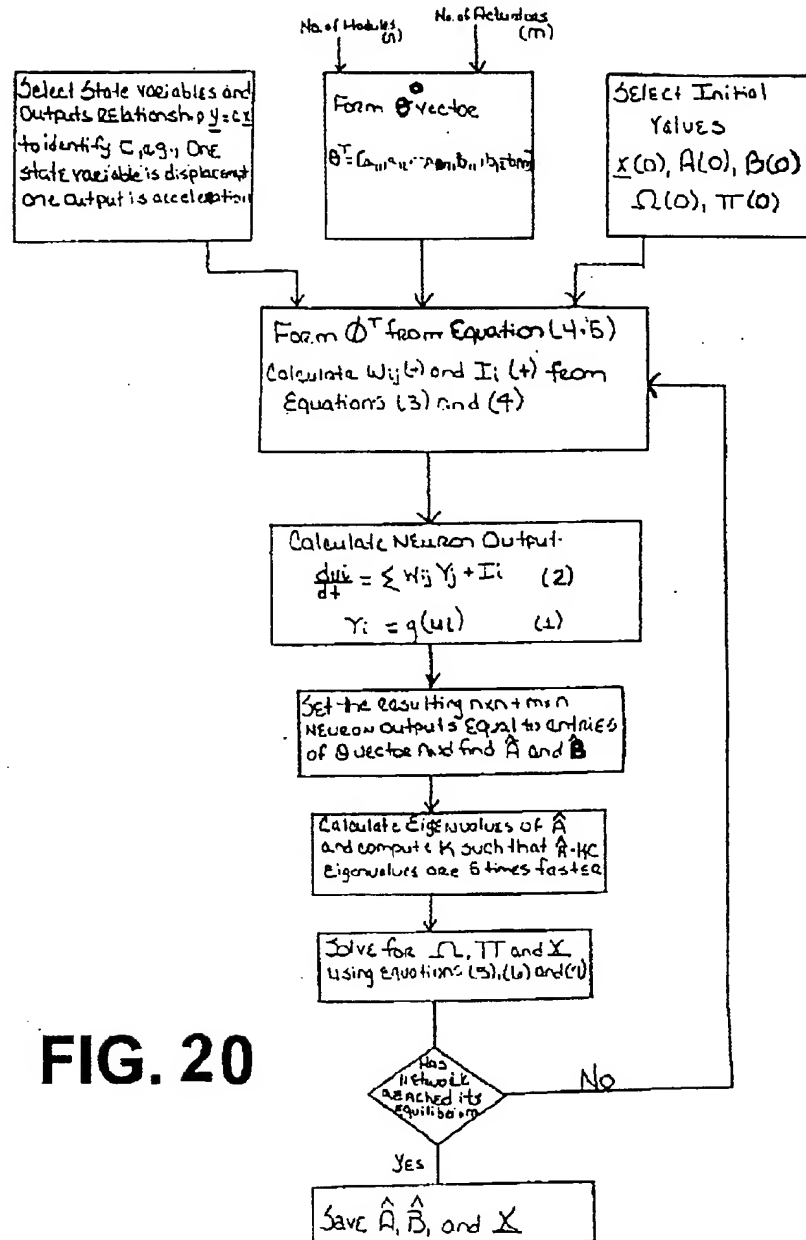 No. of Modules
(n)
No. of Actuators
(m)
Select State variables and
Outputs Relationship y=cx
to identify C, e.g., One
state variable is displacement
one output is acceleration
Form θ vector
θᵀ=[a₁₁,
SELECT Initial
Values
x(0), A(0), B(0)
Ω(0), Π(0)
Form Φᵀ from Equation (4.5)
Calculate Wij(t) and Ii(t) from
Equations (3) and (4)
Calculate Neuron Output
dui/dt = Σ Wij Yj + Ii (2)
Yi = g(ui) (1)
Set the resulting nxn + mxn
Neuron Outputs Equal to entries
of θ vector and find Â and B̂
Calculate Eigenvalues of Â
and compute K such that Â-KC
Eigenvalues are 5 times faster
Solve for Ω, Π and X
using equations (5), (6) and (7)
Has
network
reached its
equilibrium
No
Yes
Save Â, B̂, and X
FIG. 20